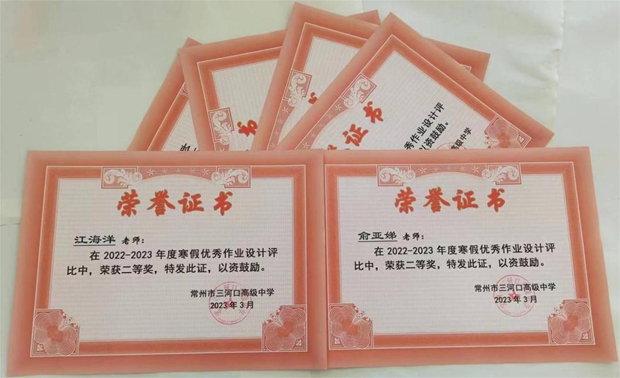 证书
证书
秀作业设计评
以资鼓励。
高级中学
荣誉证书
江海洋 老师：
在 2022-2023 年度寒假优秀作业设计评
比中，荣获二等奖，特发此证，以资鼓励。
常州市三河口高级中学
2023 年 3 月
荣誉证书
俞亚娣 老师：
在 2022-2023 年度寒假优秀作业设计评
比中，荣获二等奖，特发此证，以资鼓励。
常州市三河口高级中学
2023 年 3 月